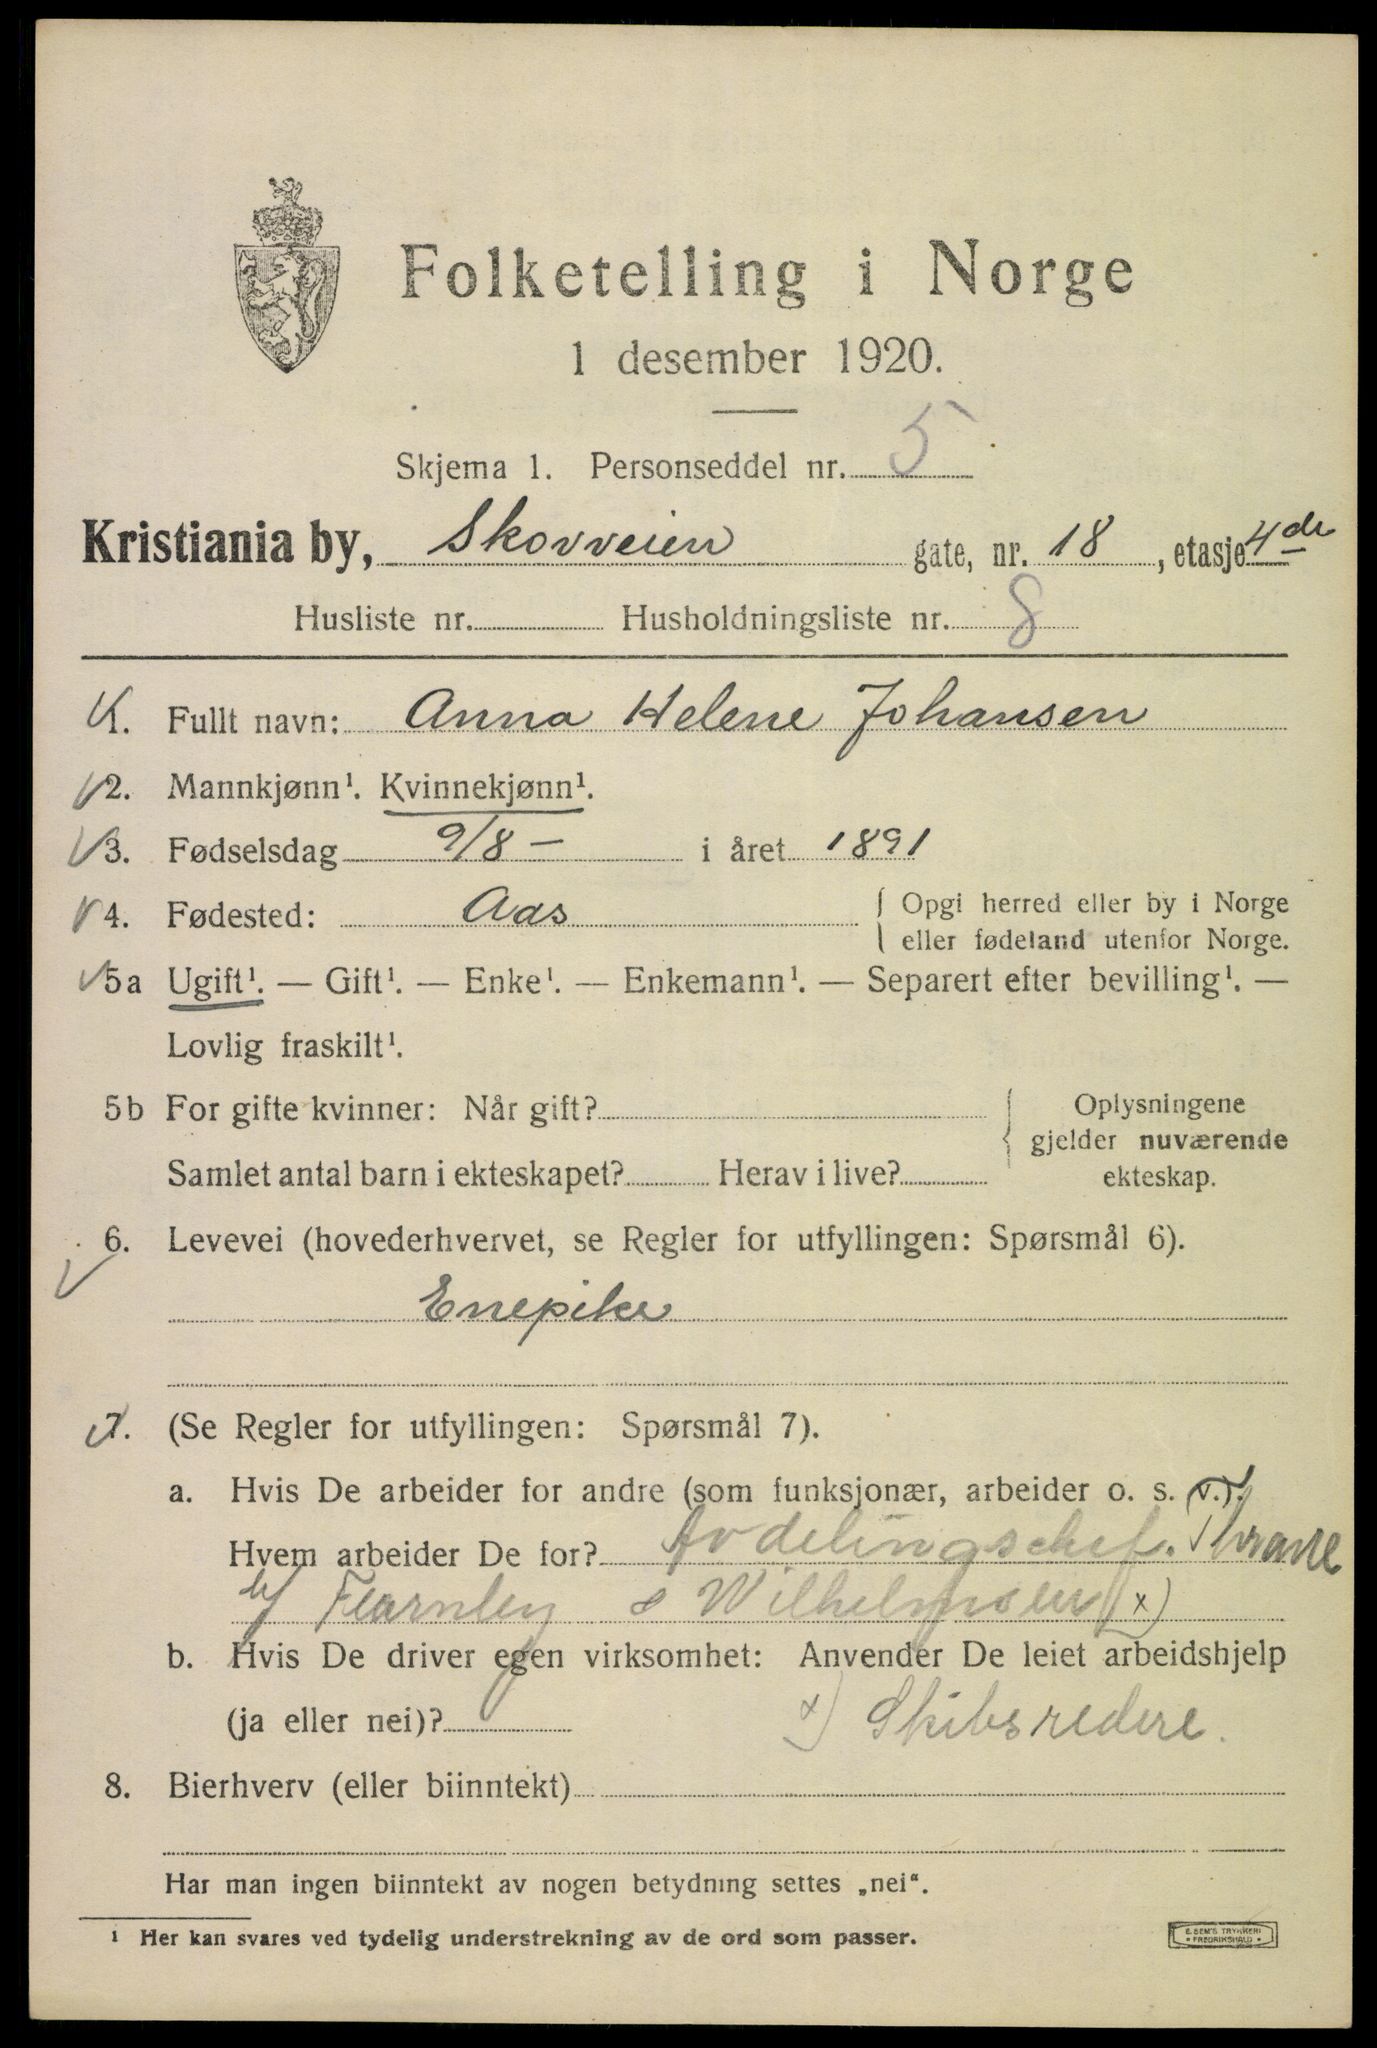 Folketelling i Norge
1 desember 1920.
Skjema 1. Personseddel nr. 5
Kristiania by, Skovveien gate, nr. 18, etasje 4de
Husliste nr. Husholdningsliste nr. 8
1. Fullt navn: Anna Helene Johansen
2. Mannkjønn¹. Kvinnekjønn¹.
3. Fødselsdag 9/8 — i året 1891
4. Fødested: Aas { Opgi herred eller by i Norge
eller fødeland utenfor Norge.
5a Ugift¹. — Gift¹. — Enke¹. — Enkemann¹. — Separert efter bevilling¹. —
Lovlig fraskilt¹.
5b For gifte kvinner: Når gift? { Oplysningene
gjelder nuværende
Samlet antal barn i ekteskapet? Herav i live? ekteskap.
6. Levevei (hovederhvervet, se Regler for utfyllingen: Spørsmål 6).
Enepike
7. (Se Regler for utfyllingen: Spørsmål 7).
a. Hvis De arbeider for andre (som funksjonær, arbeider o. s. v.).
Hvem arbeider De for? Avdelingschef. Thrane
b/ Fearnley & Wilhelmsen x)
b. Hvis De driver egen virksomhet: Anvender De leiet arbeidshjelp
(ja eller nei)? x) Skibsredere.
8. Bierhverv (eller biinntekt)
Har man ingen biinntekt av nogen betydning settes „nei“.
¹ Her kan svares ved tydelig understrekning av de ord som passer.
E. SEM'S TRYKKERI
* FREDRIKSHALD *